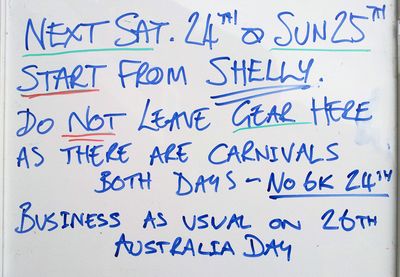 NEXT SAT. 24TH & SUN 25TH
START FROM SHELLY.
DO NOT LEAVE GEAR HERE
AS THERE ARE CARNIVALS
BOTH DAYS - NO 6K 24TH
BUSINESS AS USUAL ON 26TH
AUSTRALIA DAY